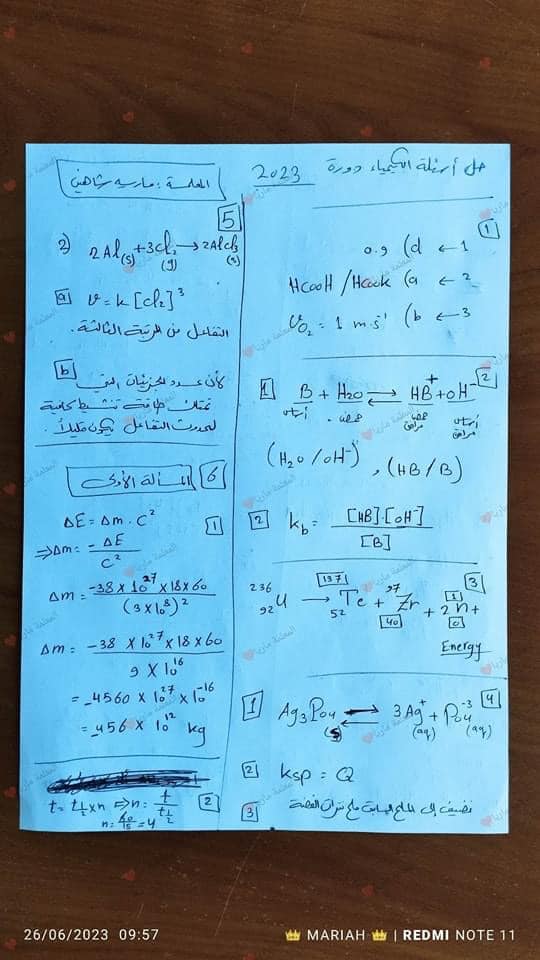 حل أسئلة الكيمياء دورة 2023
1
1 ← d) 0.9
2 ← a) HCOOH / HCOOK
3 ← b) v O₂ = 1 m.s⁻¹
2
1 B + H₂O ⇌ HB⁺ + OH⁻
أساس حمض حمض مرافق أساس مرافق
(H₂O / OH⁻) , (HB / B)
2 kb = [HB].[OH] / [B]
3
²³⁶₉₂U → ¹³⁷₅₂Te + ⁹⁷₄₀Zr + 2 ¹₀n +
Energy
4
1 Ag₃PO₄ (s) ⇌ 3Ag⁺ (aq) + PO₄⁻³ (aq)
2 ksp = Q
3 نضيف إلى الملح السابق ملح نترات الفضة
المعلمة : مارية شاهين
5
2) 2Al(s) + 3Cl₂(g) → 2AlCl₃(s)
a v = k [Cl₂]³
التفاعل من المرتبة الثالثة.
b لأن عدد الجزيئات التي
تمتلك طاقة تنشيط كافية
لحدوث التفاعل يكون قليلاً.
6 المسألة الأولى
1 ΔE = Δm . c²
⇒ Δm = - ΔE / c²
Δm = -38 × 10²⁷ × 18 × 60 / (3 × 10⁸)²
Δm = -38 × 10²⁷ × 18 × 60 / 9 × 10¹⁶
= -4560 × 10²⁷ × 10⁻¹⁶
= -456 × 10¹² kg
2 t = t½ × n ⇒ n = t / t½
n = 60/15 = 4
26/06/2023 09:57
MARIAH | REDMI NOTE 11